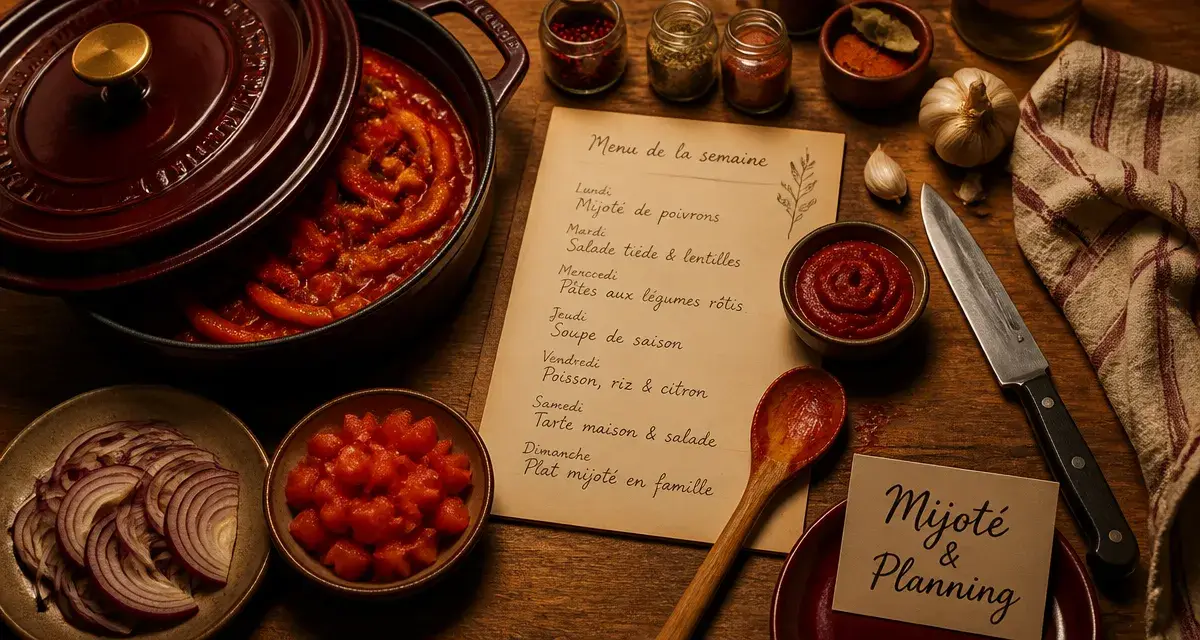 Menu de la semaine
Lundi
Mijoté de poivrons
Mardi
Salade tiède & lentilles
Mercredi
Pâtes aux légumes rôtis
Jeudi
Soupe de saison
Vendredi
Poisson, riz & citron
Samedi
Tarte maison & salade
Dimanche
Plat mijoté en famille
Mijoté
&
Planning